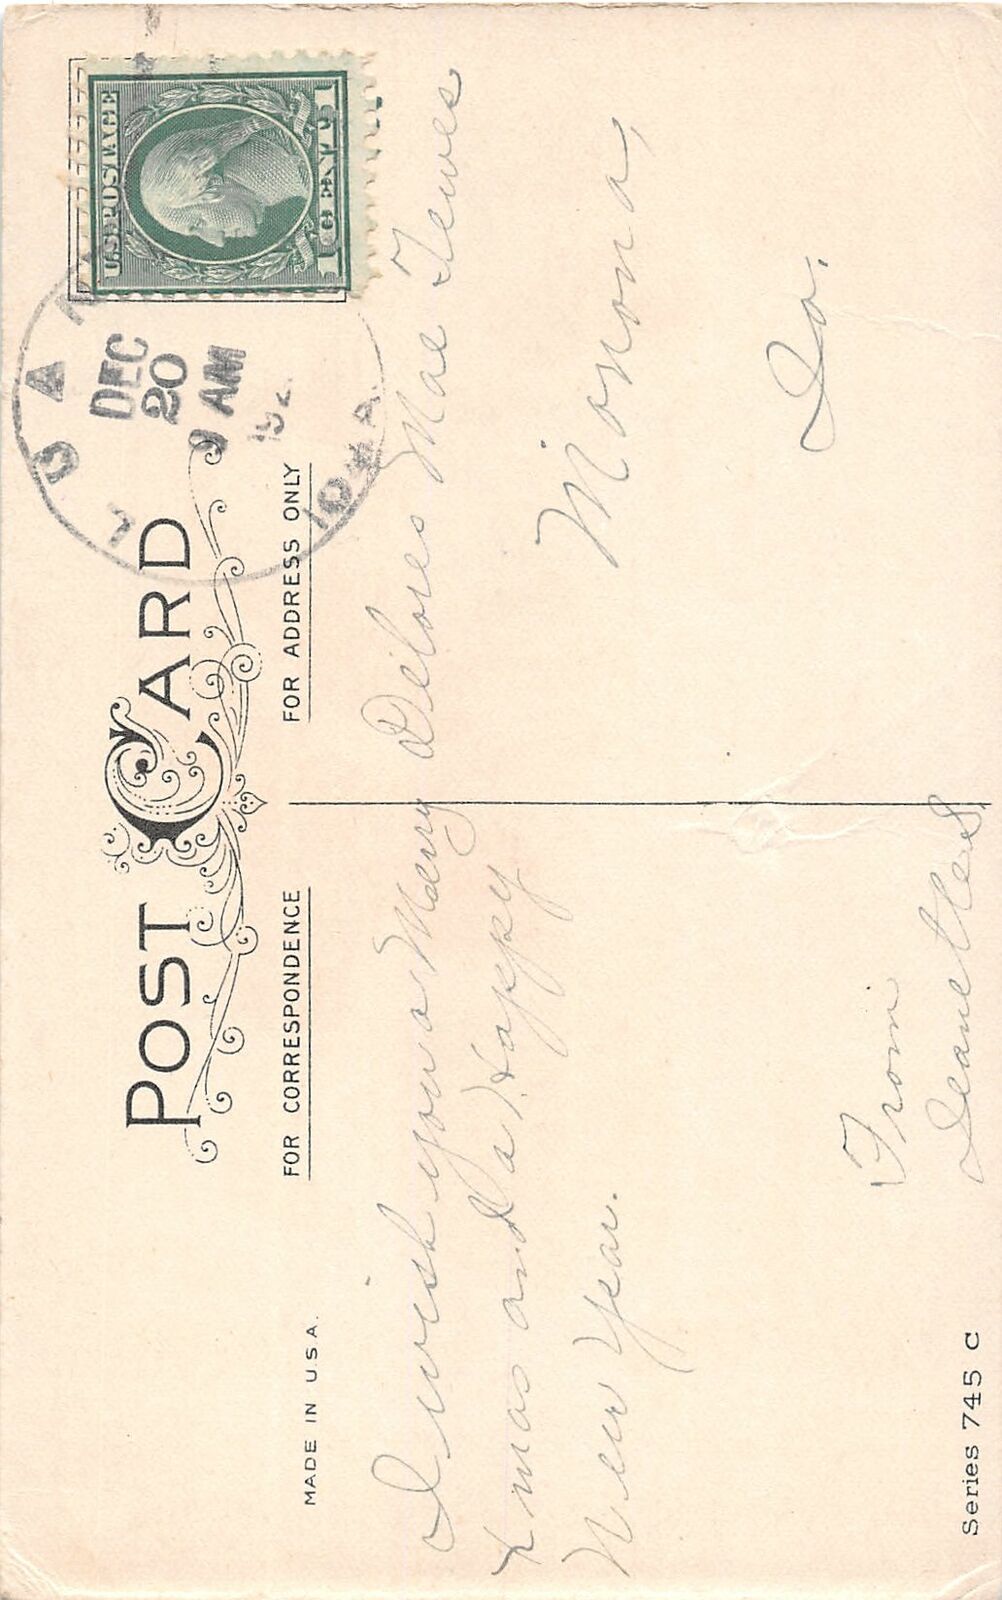 POST CARD
MADE IN U.S.A.
FOR CORRESPONDENCE
FOR ADDRESS ONLY
U.S. POSTAGE
1 CENTS 1
LUAN
DEC
20
9 AM
192
IOWA
I wish you a Merry
Xmas and a Happy
New Year.
From
Jeanette S.
Delores Mae Tewes
Monona,
Ia.
Series 745 C